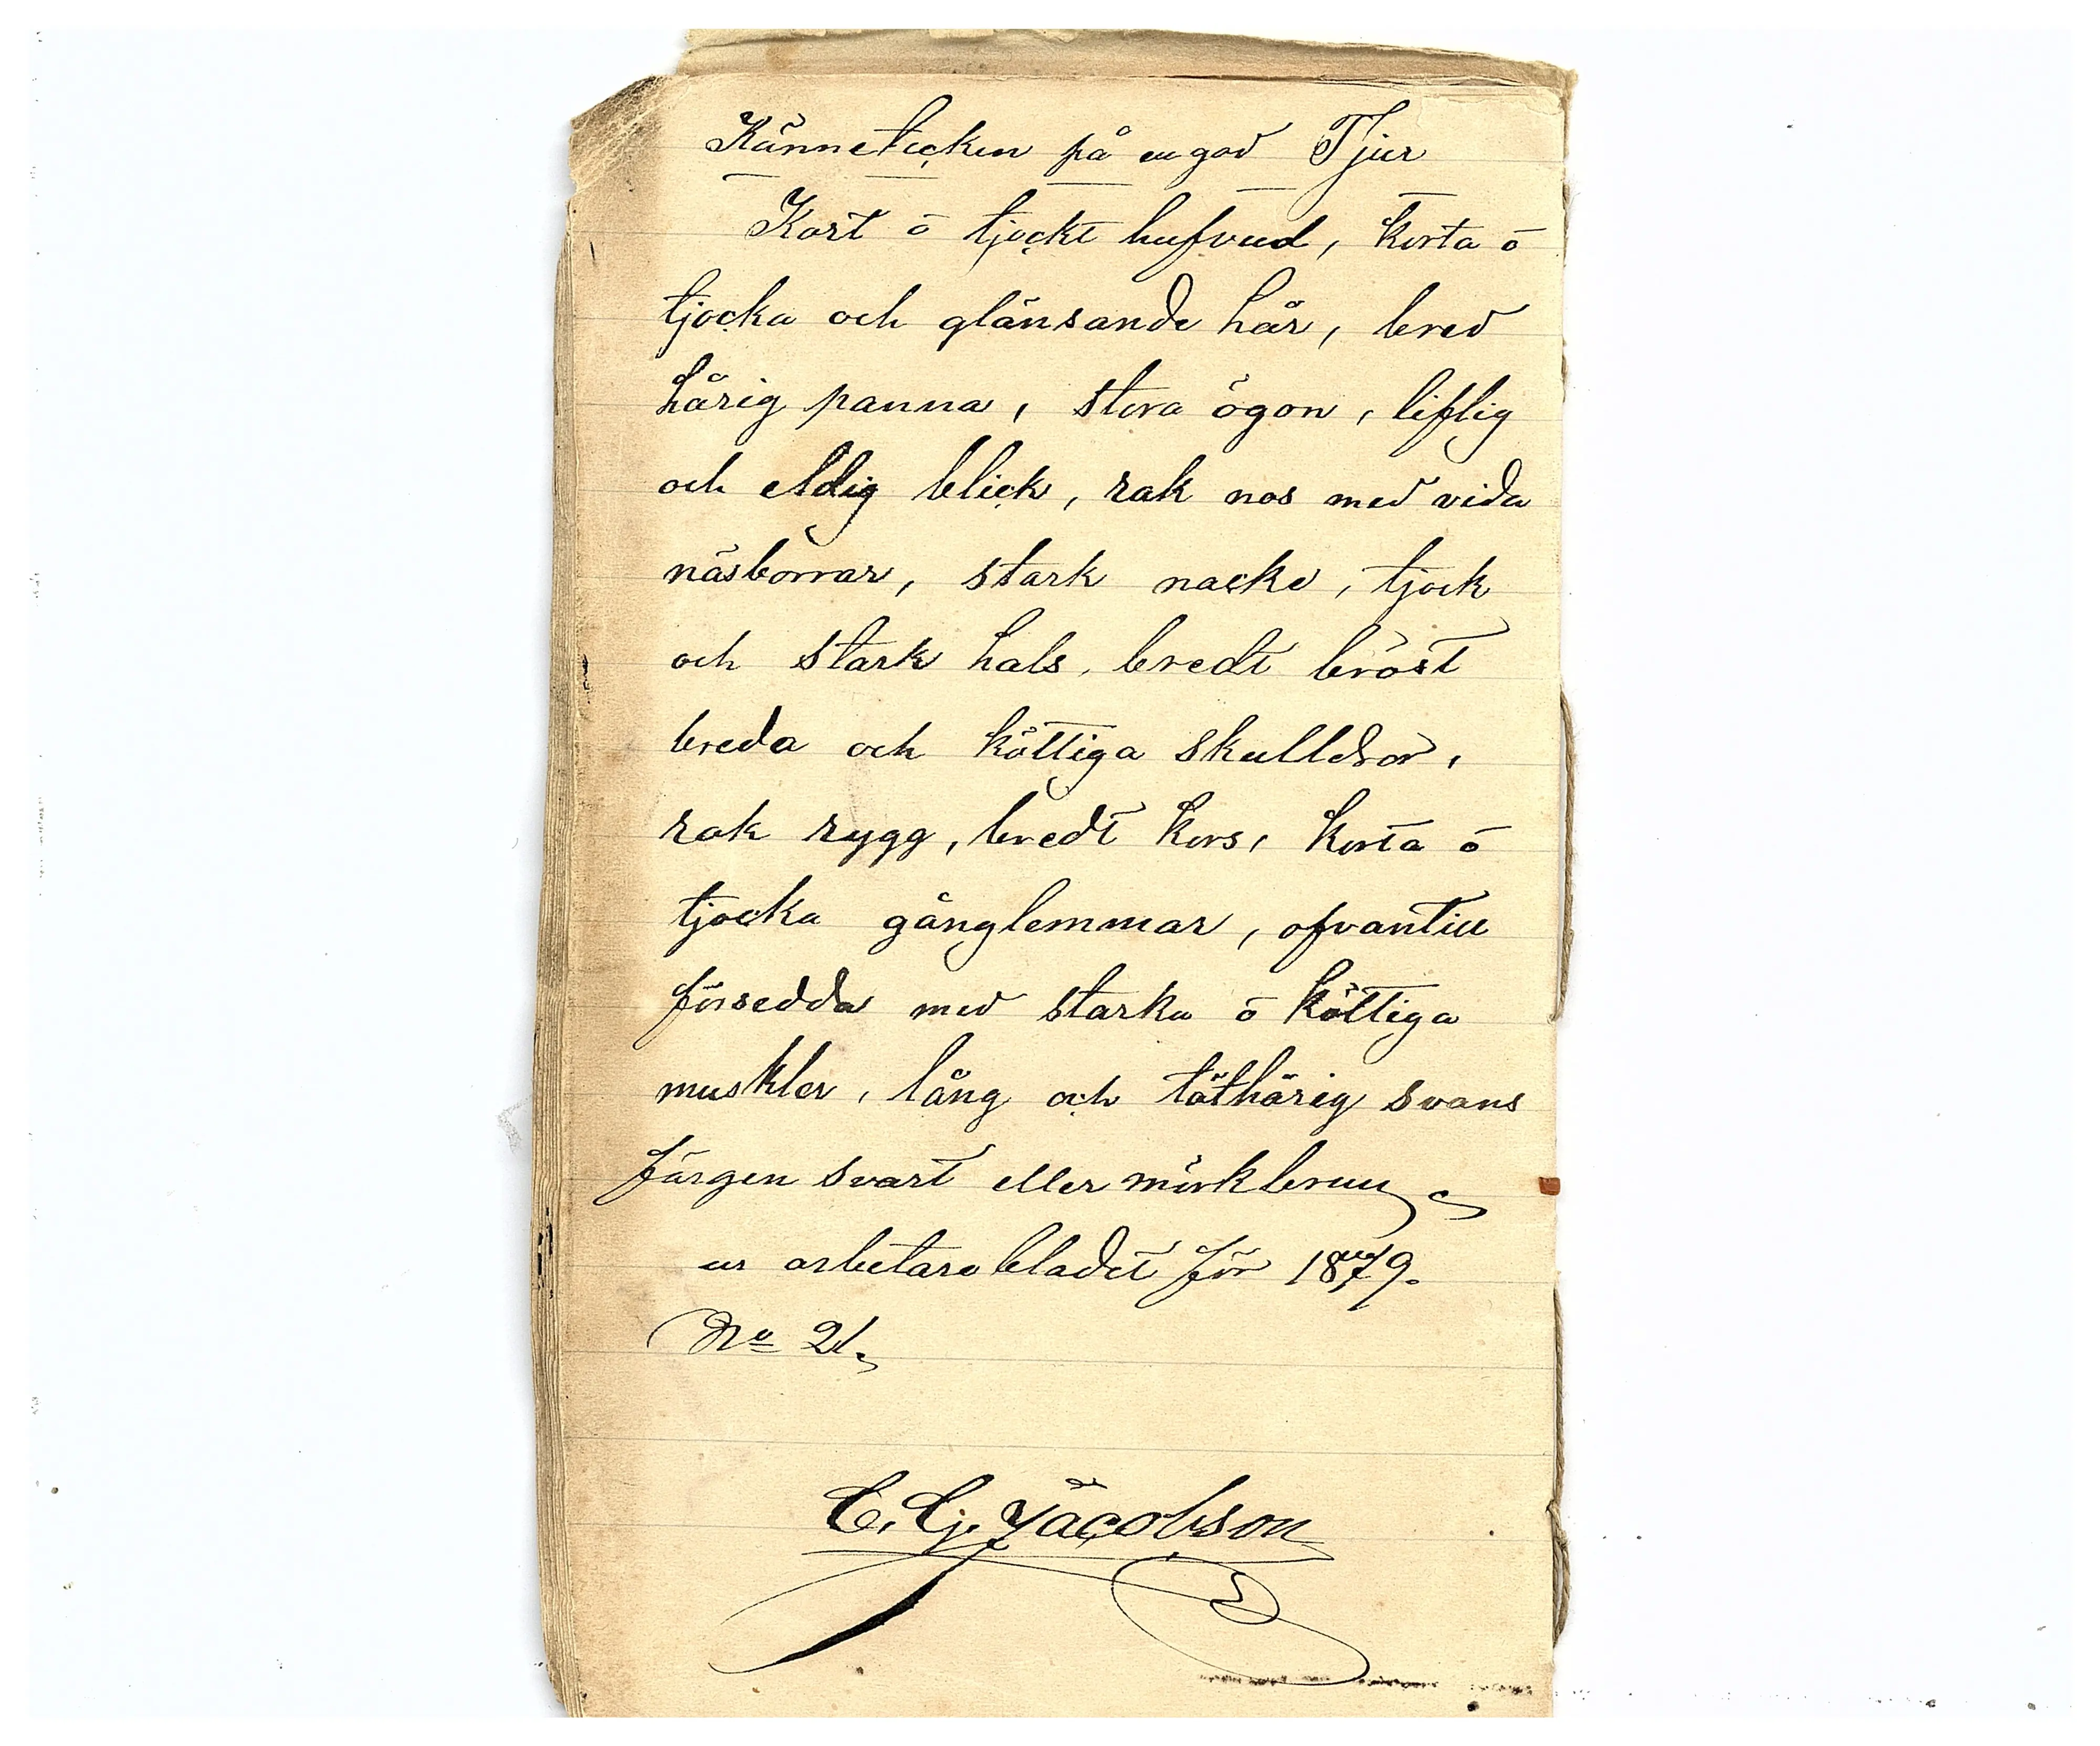 Kännetecken på en god Tjur
Kort o tjockt hufvud, korta o
tjocka och glänsande hår, bred
hårig panna, stora ögon, liflig
och eldig blick, rak nos med vida
näsborrar, stark nacke, tjock
och stark hals, bredt bröst
breda och köttiga skulldror,
rak rygg, bredt kors, korta o
tjocka gånglemmar, ofvantill
försedda med starka o köttiga
muskler, lång och täthårig svans
färgen svart eller mörkbrun
ur arbetarebladet för 1879.
No 21.
C. G. Jacobson